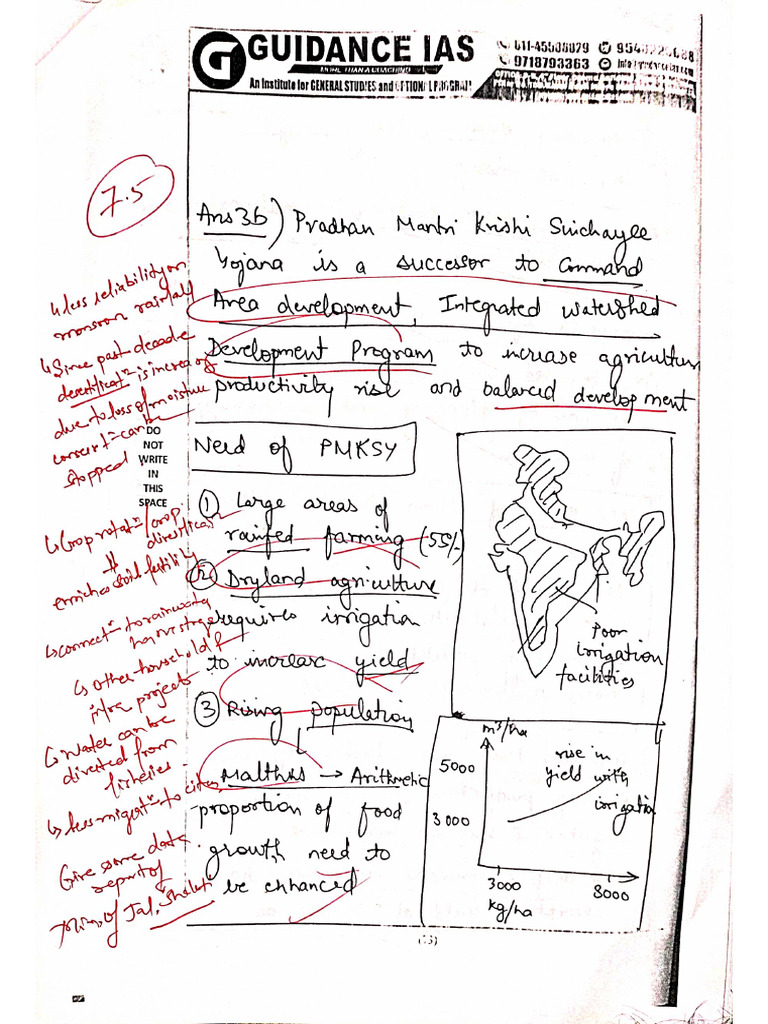 GUIDANCE IAS
MORE THAN A COACHING
An Institute for GENERAL STUDIES and OPTIONAL PROGRAM
011-45508079
9718793363
7.5
Ans 3b) Pradhan Mantri Krishi Sinchayee
Yojana is a successor to Command
Area development, Integrated Watershed
Development Program to increase agriculture
productivity rise and balanced development
Need of PMKSY
① Large areas of
rainfed farming (55%)
② Dryland agriculture
requires irrigation
to increase yield
③ Rising population
Malthus → Arithmetic
proportion of food
growth need to
be enhanced
Poor
irrigation
facilities
m³/ha
5000
3000
rise in
yield with
irrigation
3000
8000
kg/ha
DO
NOT
WRITE
IN
THIS
SPACE
less reliability on
monsoon rainfall
Since past decade
is increase
due to loss of moisture
can be
stopped
Crop rotatn / crop
enriches soil fertility
connectn to rainwater
harvesting
other household &
infra projects
Water can be
diverted from
fisheries
less migratn to cities
Give some data
report of
of Jal Shakti